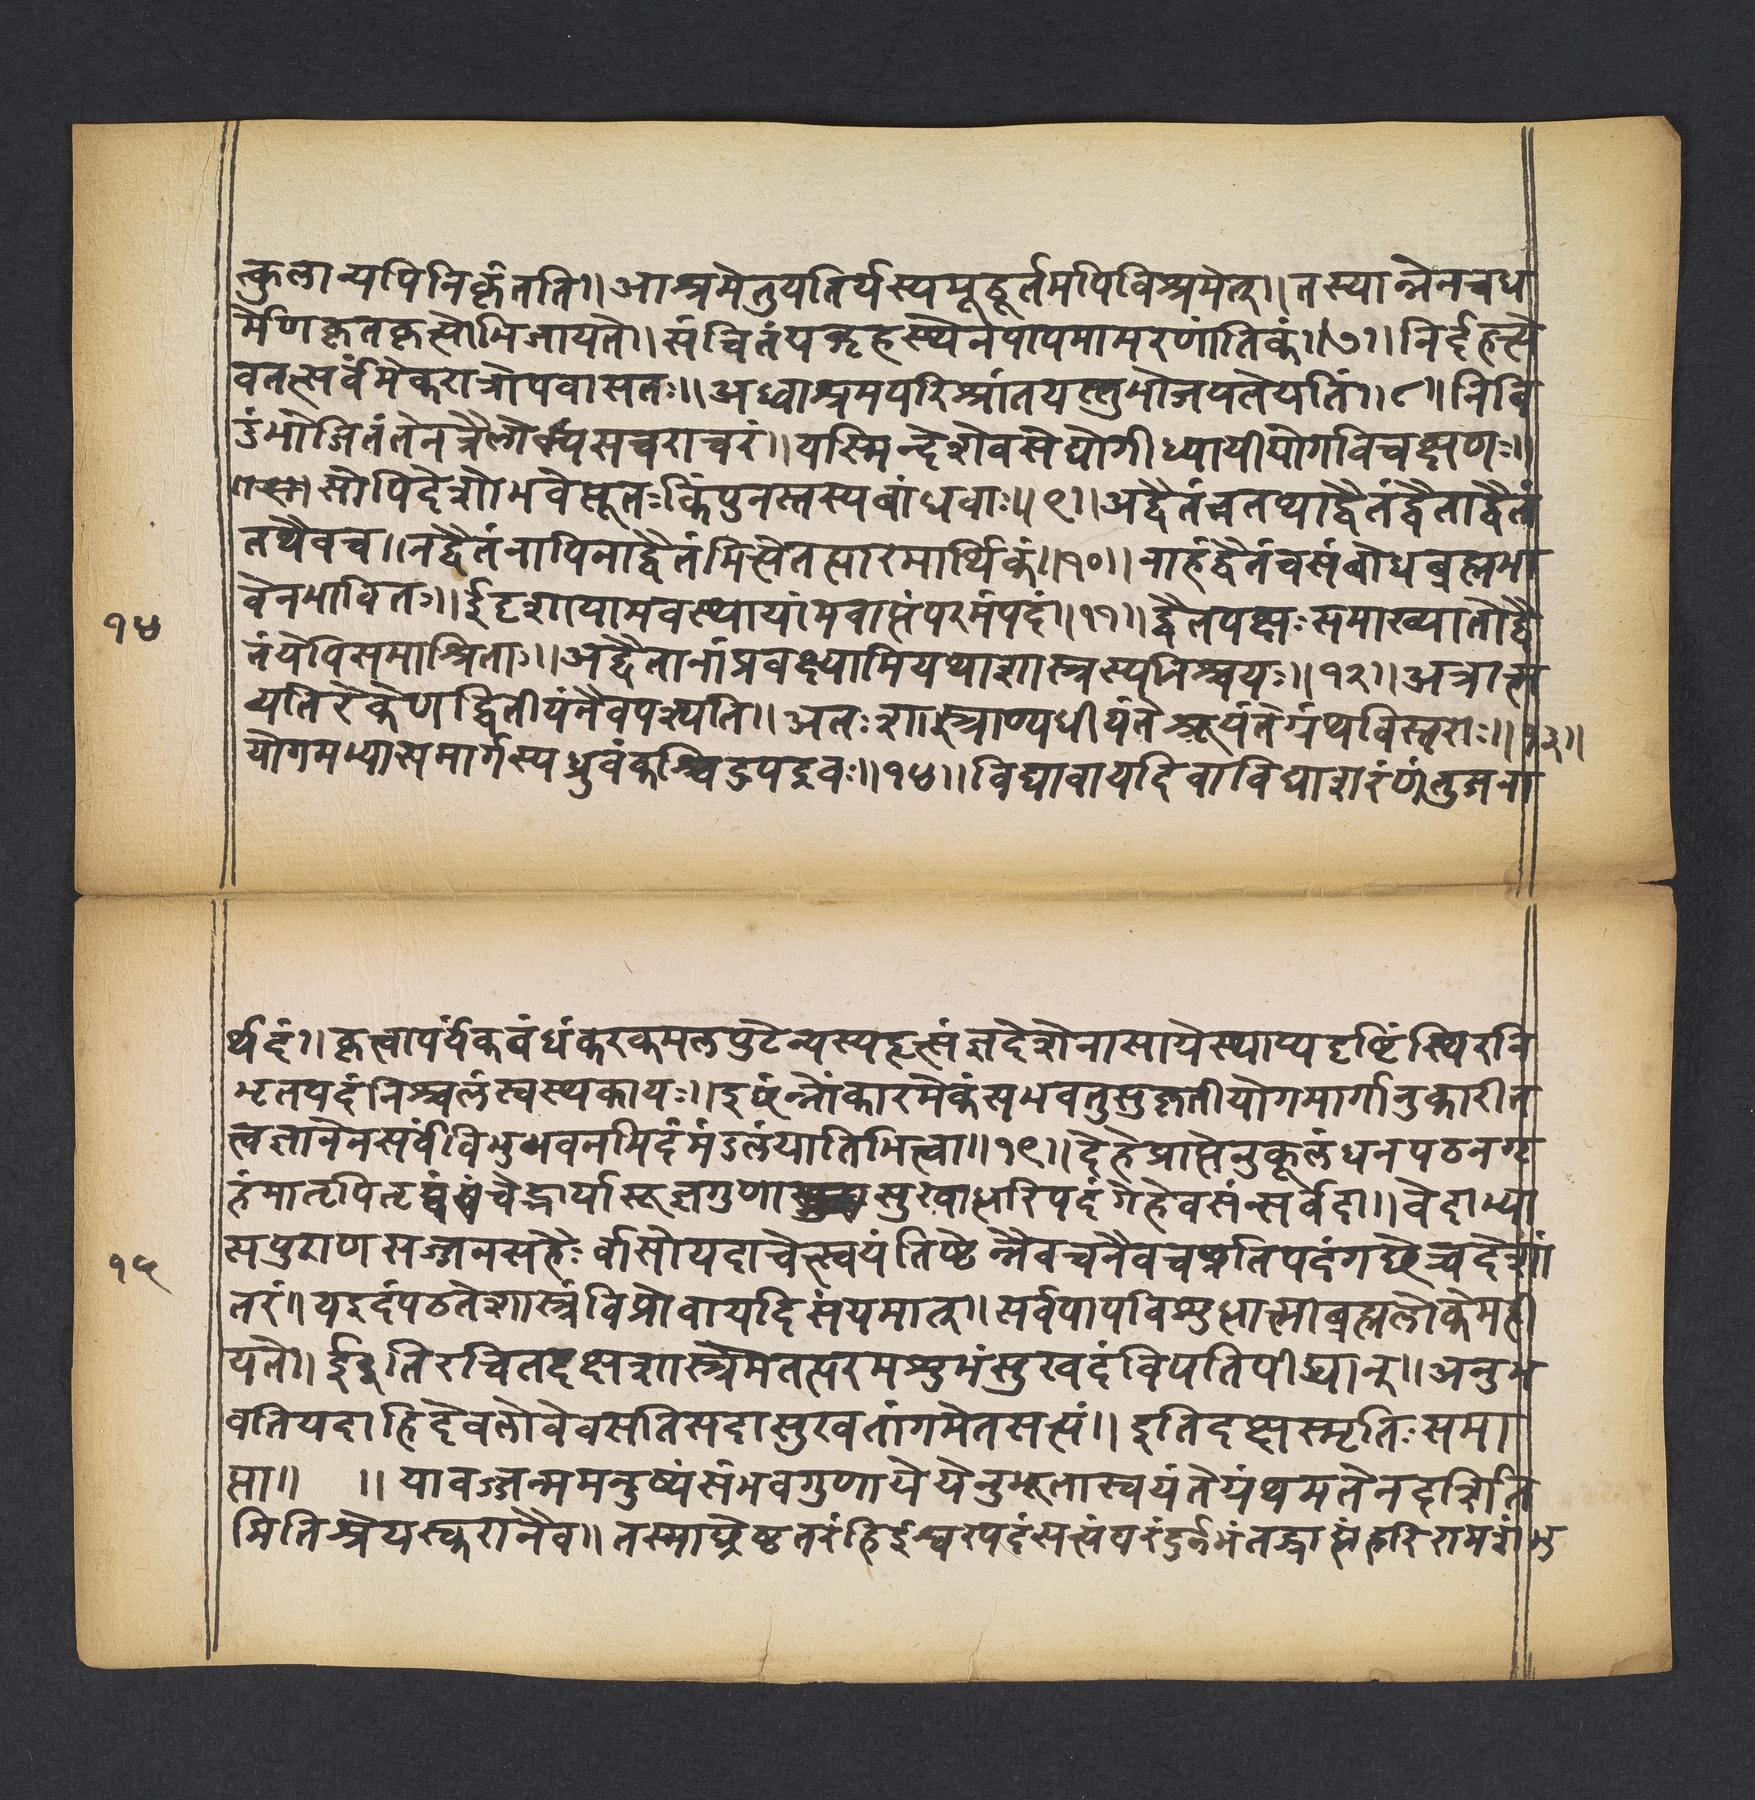 त्कुलान्यपिनिकृंतति॥आश्रमेतुयतिर्यस्यमूहूर्तमपिविश्रमेत्॥तस्यान्नेनचध
र्मेणिकृतकृत्सोभिजायते॥संचितंपगृहस्थेनपापमामरणांतिकं॥७॥निर्दहत्ये
वतत्सर्वमेकरात्रोपवासतः॥अध्वाश्रमपरिश्रांतयस्तुभोजपलेयति॥८॥निबि
डंभोजितंतेनत्रैलोक्यंसचराचरं॥यस्मिन्देशेवसेद्योगीध्यायीयोगविचक्षणः॥
सोपिदेशोभवेत्पूतःकिंपुनस्तस्यबांधवाः॥९॥अद्वैतंचतथाद्वैतंद्वैताद्वैतं
तथैवच॥नद्वैतंनापिनाद्वैतंमित्येतत्पारमार्थिकं॥१०॥नाहंद्वैतंचसंबोधब्रह्मभा
वेनभावितः॥ईदृशायामवस्थायांमवाप्तंपरमंपदं॥११॥द्वैतपक्षःसमाख्यातोद्वै
तंयेपिसमाश्रिताः॥अद्वैतानांप्रवक्ष्यामियथाशास्त्रस्यनिश्चयः॥१२॥अत्रात्म
१४
व्यतिरेकेणद्वितीयंनैवपश्यति॥अतःशास्त्राण्यधीयंतेश्रूयंतेग्रंथविस्तराः॥१३॥
योगमभ्यासमार्गस्यध्रुवंकश्चिदुपद्रवः॥१४॥विद्यावायदिवाविद्याशरंणंतुजना
र्थदं॥कृत्वापर्यंकबंधंकरकमलपुटेन्यस्यहृत्संज्ञदेशेनासाग्रेस्थाप्यदृष्टिंस्थिरनि
भृतपदंनिश्चलंस्वस्थकायः॥इर्थंन्नोंकारमेकंसभवतुसुकृतीयोगमार्गानुकारीत
त्वज्ञानेनसर्वंविभुभवनमिदंमंडलंयातिभित्वा॥१९॥देहेप्राप्तेनुकूलंधनपठनगृ
हंमातृपितृचेद्भार्यारूज्ञगुणासुखाधारिपदंगेहेवसंन्सर्वदा॥वेदाभ्या
सपुराणसज्जनसहैःर्वासोयदाचेत्स्वयंतिष्टेन्नैवचनैवचच्युतिपदंगछेच्चदेशां
१५
तरं॥यइदंपठतेशास्त्रंविप्रोवायदिसंयमात्॥सर्वपापविशुधात्माब्रह्मलोकेमही
यते॥ईइतिरचितदक्षशास्त्रमेतत्परमशुभंसुखदंविपतिपीद्यान्॥अनुभ
वतियदाहिदेवलोवेवसतिसदासुखतांगमेतसत्यं॥इतिदक्षस्मृतिःसमा
प्ता॥ ॥यावज्जन्ममनुष्यंसंभवगुणायेयेनुभूतास्वयंतेग्रंथमतेनदक्षिति
मितिश्रेयस्करानैव॥तस्माछ्रेष्ठतरंहिईश्वरपदंसत्यंपरंदुर्लभंतद्भाहरिरामशं